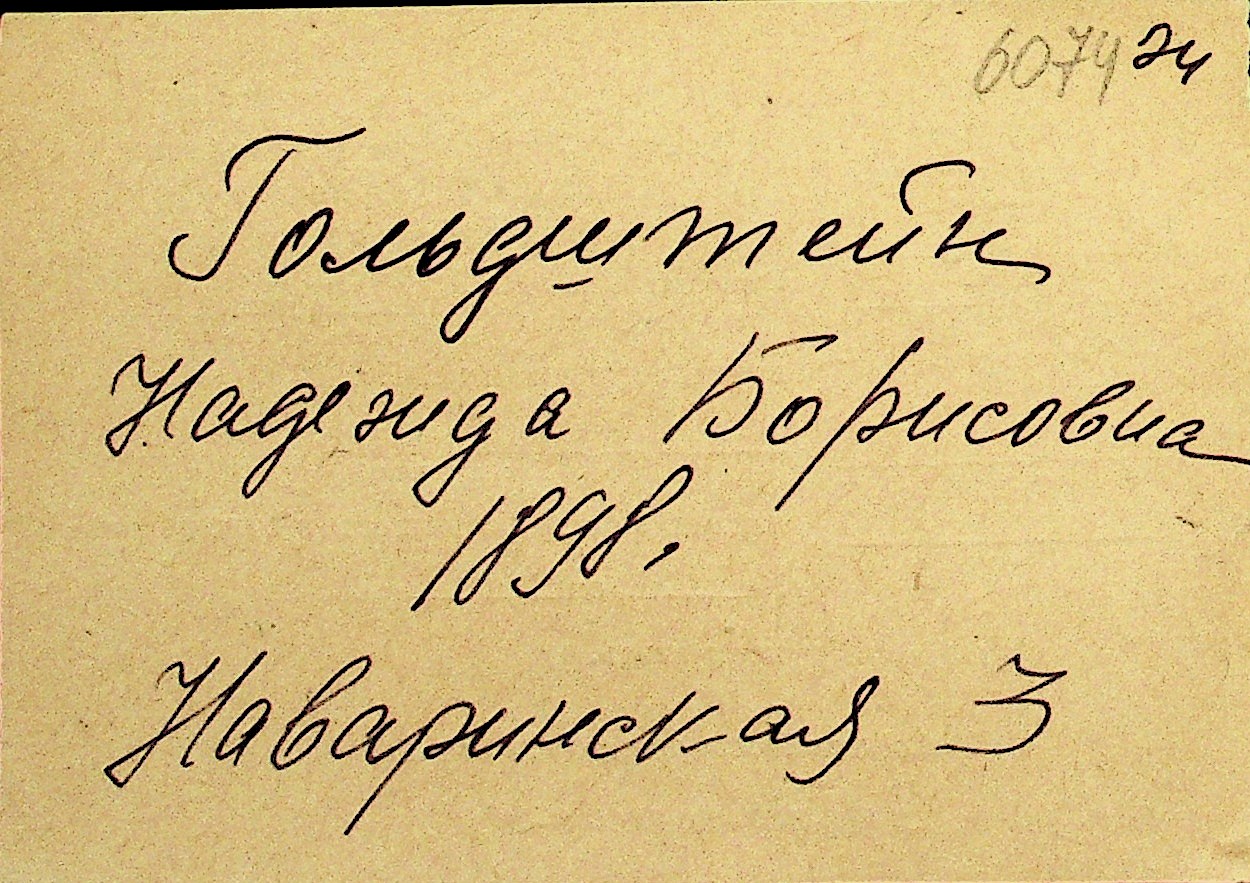 6074
Гольдштейн
Надежда Борисовна
1898.
Наваринская 3